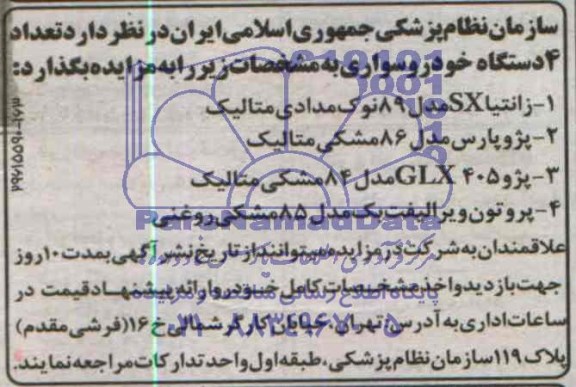 سازمان نظام پزشکی جمهوری اسلامی ایران در نظر دارد تعداد
۴ دستگاه خودرو سواری به مشخصات زیر را به مزایده بگذارد:
۱- زانتیا SX مدل ۸۹ نوک مدادی متالیک
۲- پژو پارس مدل ۸۶ مشکی متالیک
۳- پژو ۴۰۵ GLX مدل ۸۴ مشکی متالیک
۴- پروتون ویرا لیفت بک مدل ۸۵ مشکی روغنی
علاقمندان به شرکت در مزایده میتوانند از تاریخ نشر آگهی بمدت ۱۰ روز
جهت بازدید و اخذ مشخصات کامل خودرو و ارائه پیشنهاد قیمت در
ساعات اداری به آدرس: تهران، خیابان کارگر شمالی خ ۱۶ (فرشی مقدم)
پلاک ۱۱۹ سازمان نظام پزشکی، طبقه اول واحد تدارکات مراجعه نمایند.
ParsNamadData
پایگاه اطلاع رسانی مناقصه و مزایده
۰۲۱-۸۸۳۴۹۶۷۰-۵